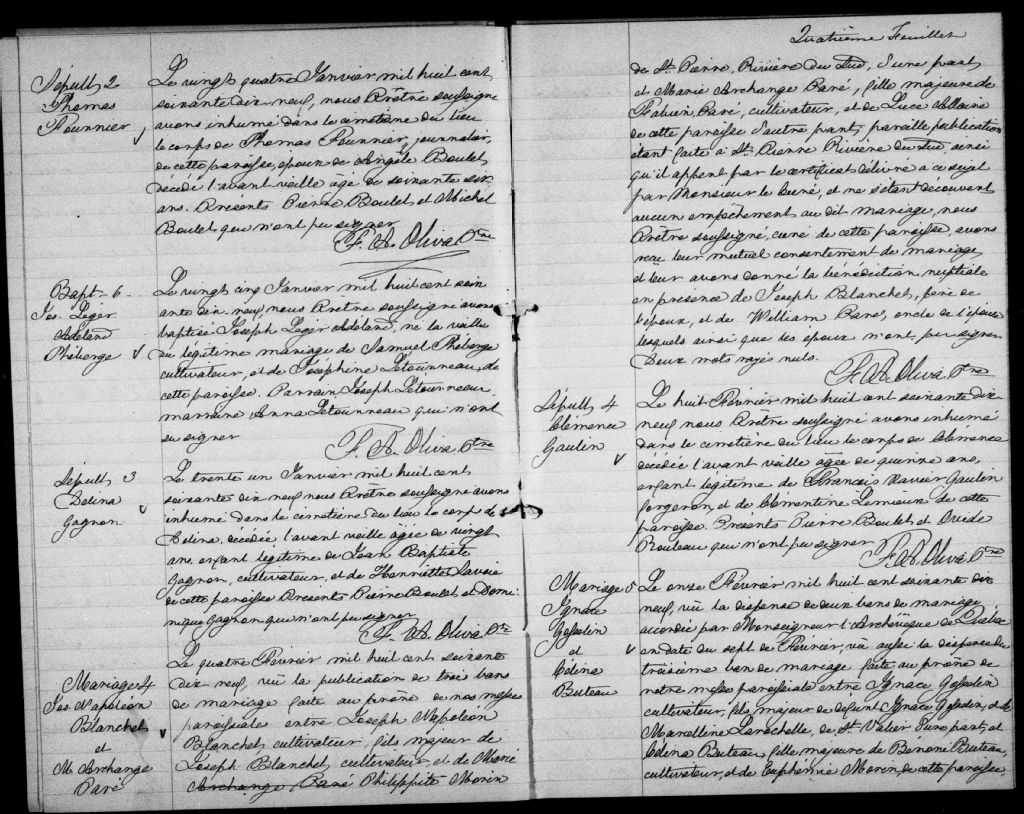 Sépult 2
Thomas
Fournier
Le vingt quatre Janvier mil huit cent
soixante dix neuf, nous Prêtre soussigné
avons inhumé dans le cimetière du lieu
le corps de Thomas Fournier, journalier,
de cette paroisse, époux de Angèle Boulet,
décédé l'avant veille âgé de soixante six
ans. Présents Pierre Boulet et Michel
Boulet qui n'ont pu signer
F. A. Oliva Ptre
Bapt - 6
Jos. Léger
Adélard
Théberge
Le vingt cinq Janvier mil huit cent soix
ante dix neuf, nous Prêtre soussigné avons
baptisé Joseph Léger Adélard, né la veille
du légitime mariage de Samuel Théberge
cultivateur, et de Joséphine Létourneau, de
cette paroisse. Parrain Joseph Létourneau
marraine Anna Létourneau qui n'ont
su signer
F. A. Oliva Ptre
Sépult 3
Délina
Gagnon
Le trente un Janvier mil huit cent
soixante dix neuf nous Prêtre soussigné avons
inhumé dans le cimetière du lieu le corp de
Délina, décédée l'avant veille âgée de vingt
ans, enfant légitime de Jean Baptiste
Gagnon, cultivateur, et de Henriette Lavoie
de cette paroisse Présents Pierre Boulet et Domi-
nique Gagnon qui n'ont pu signer
F. A. Oliva Ptre
Mariage 4
Jos. Napoléon
Blanchet
et
M. Archange
Paré
Le quatre Février mil huit cent soixante
dix neuf, vu la publication de trois bans
de mariage faite au prône de nos messes
paroissiale entre Joseph Napoléon
Blanchet, cultivateur, fils majeur de
Joseph Blanchet, cultivateur, et de Marie
Archange Paré Philippite Morin
Quatrième Feuillet
de St. Pierre, Rivière du Sud, d'une part
et Marie Archange Paré, fille majeure de
Fabien Paré, cultivateur, et de Luce Allaire
de cette paroisse d'autre part, pareille publication
étant faite à St. Pierre Rivière du Sud, ainsi
qu'il appert par le certificat délivré à ce sujet
par Monsieur le Curé, et ne s'étant découvert
aucun empêchement au dit mariage, nous
Prêtre soussigné, curé de cette paroisse, avons
reçu leur mutuel consentement de mariage
et leur avons donné la bénédiction nuptiale
en présence de Joseph Blanchet, père de
l'époux, et de William Paré, oncle de l'épouse
lesquels ainsi que les époux n'ont pu signer
Deux mots rayés nuls.
F. A. Oliva Ptre
Sépult 4
Clémence
Gaulin
Le huit Février mil huit cent soixante dix
neuf nous Prêtre soussigné avons inhumé
dans le cimetière du lieu le corps de Clémence
décédée l'avant veille âgée de quinze ans,
enfant légitime de François Xavier Gaulin
forgeron, et de Clémentine Lemieux de cette
paroisse. Présents Pierre Boulet et Ovide
Rouleau qui n'ont pu signer
F. A. Oliva Ptre
Mariage 5
Ignace
Gosselin
et
Célina
Buteau
Le onze Février mil huit cent soixante dix
neuf, vu la dispense de deux bans de mariage
accordée par Monseigneur l'Archevêque de Québec
en date du sept de Février, vu aussi la dispense du
troisième ban de mariage faite au prône de
notre messe paroissiale entre Ignace Gosselin
cultivateur, fils majeur de défunt Ignace Gosselin, et de
Marcelline Larochelle, de St. Valier d'une part, et
Célina Buteau, fille majeure de Bénoni Buteau,
cultivateur, et de Euphémie Morin, de cette paroisse